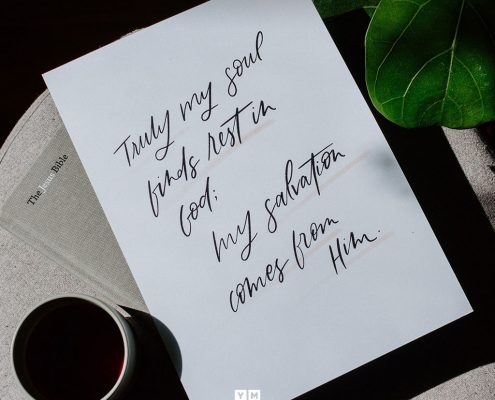 Truly my soul
finds rest in
God;
my salvation
comes from
Him.
The Jesus Bible
YM